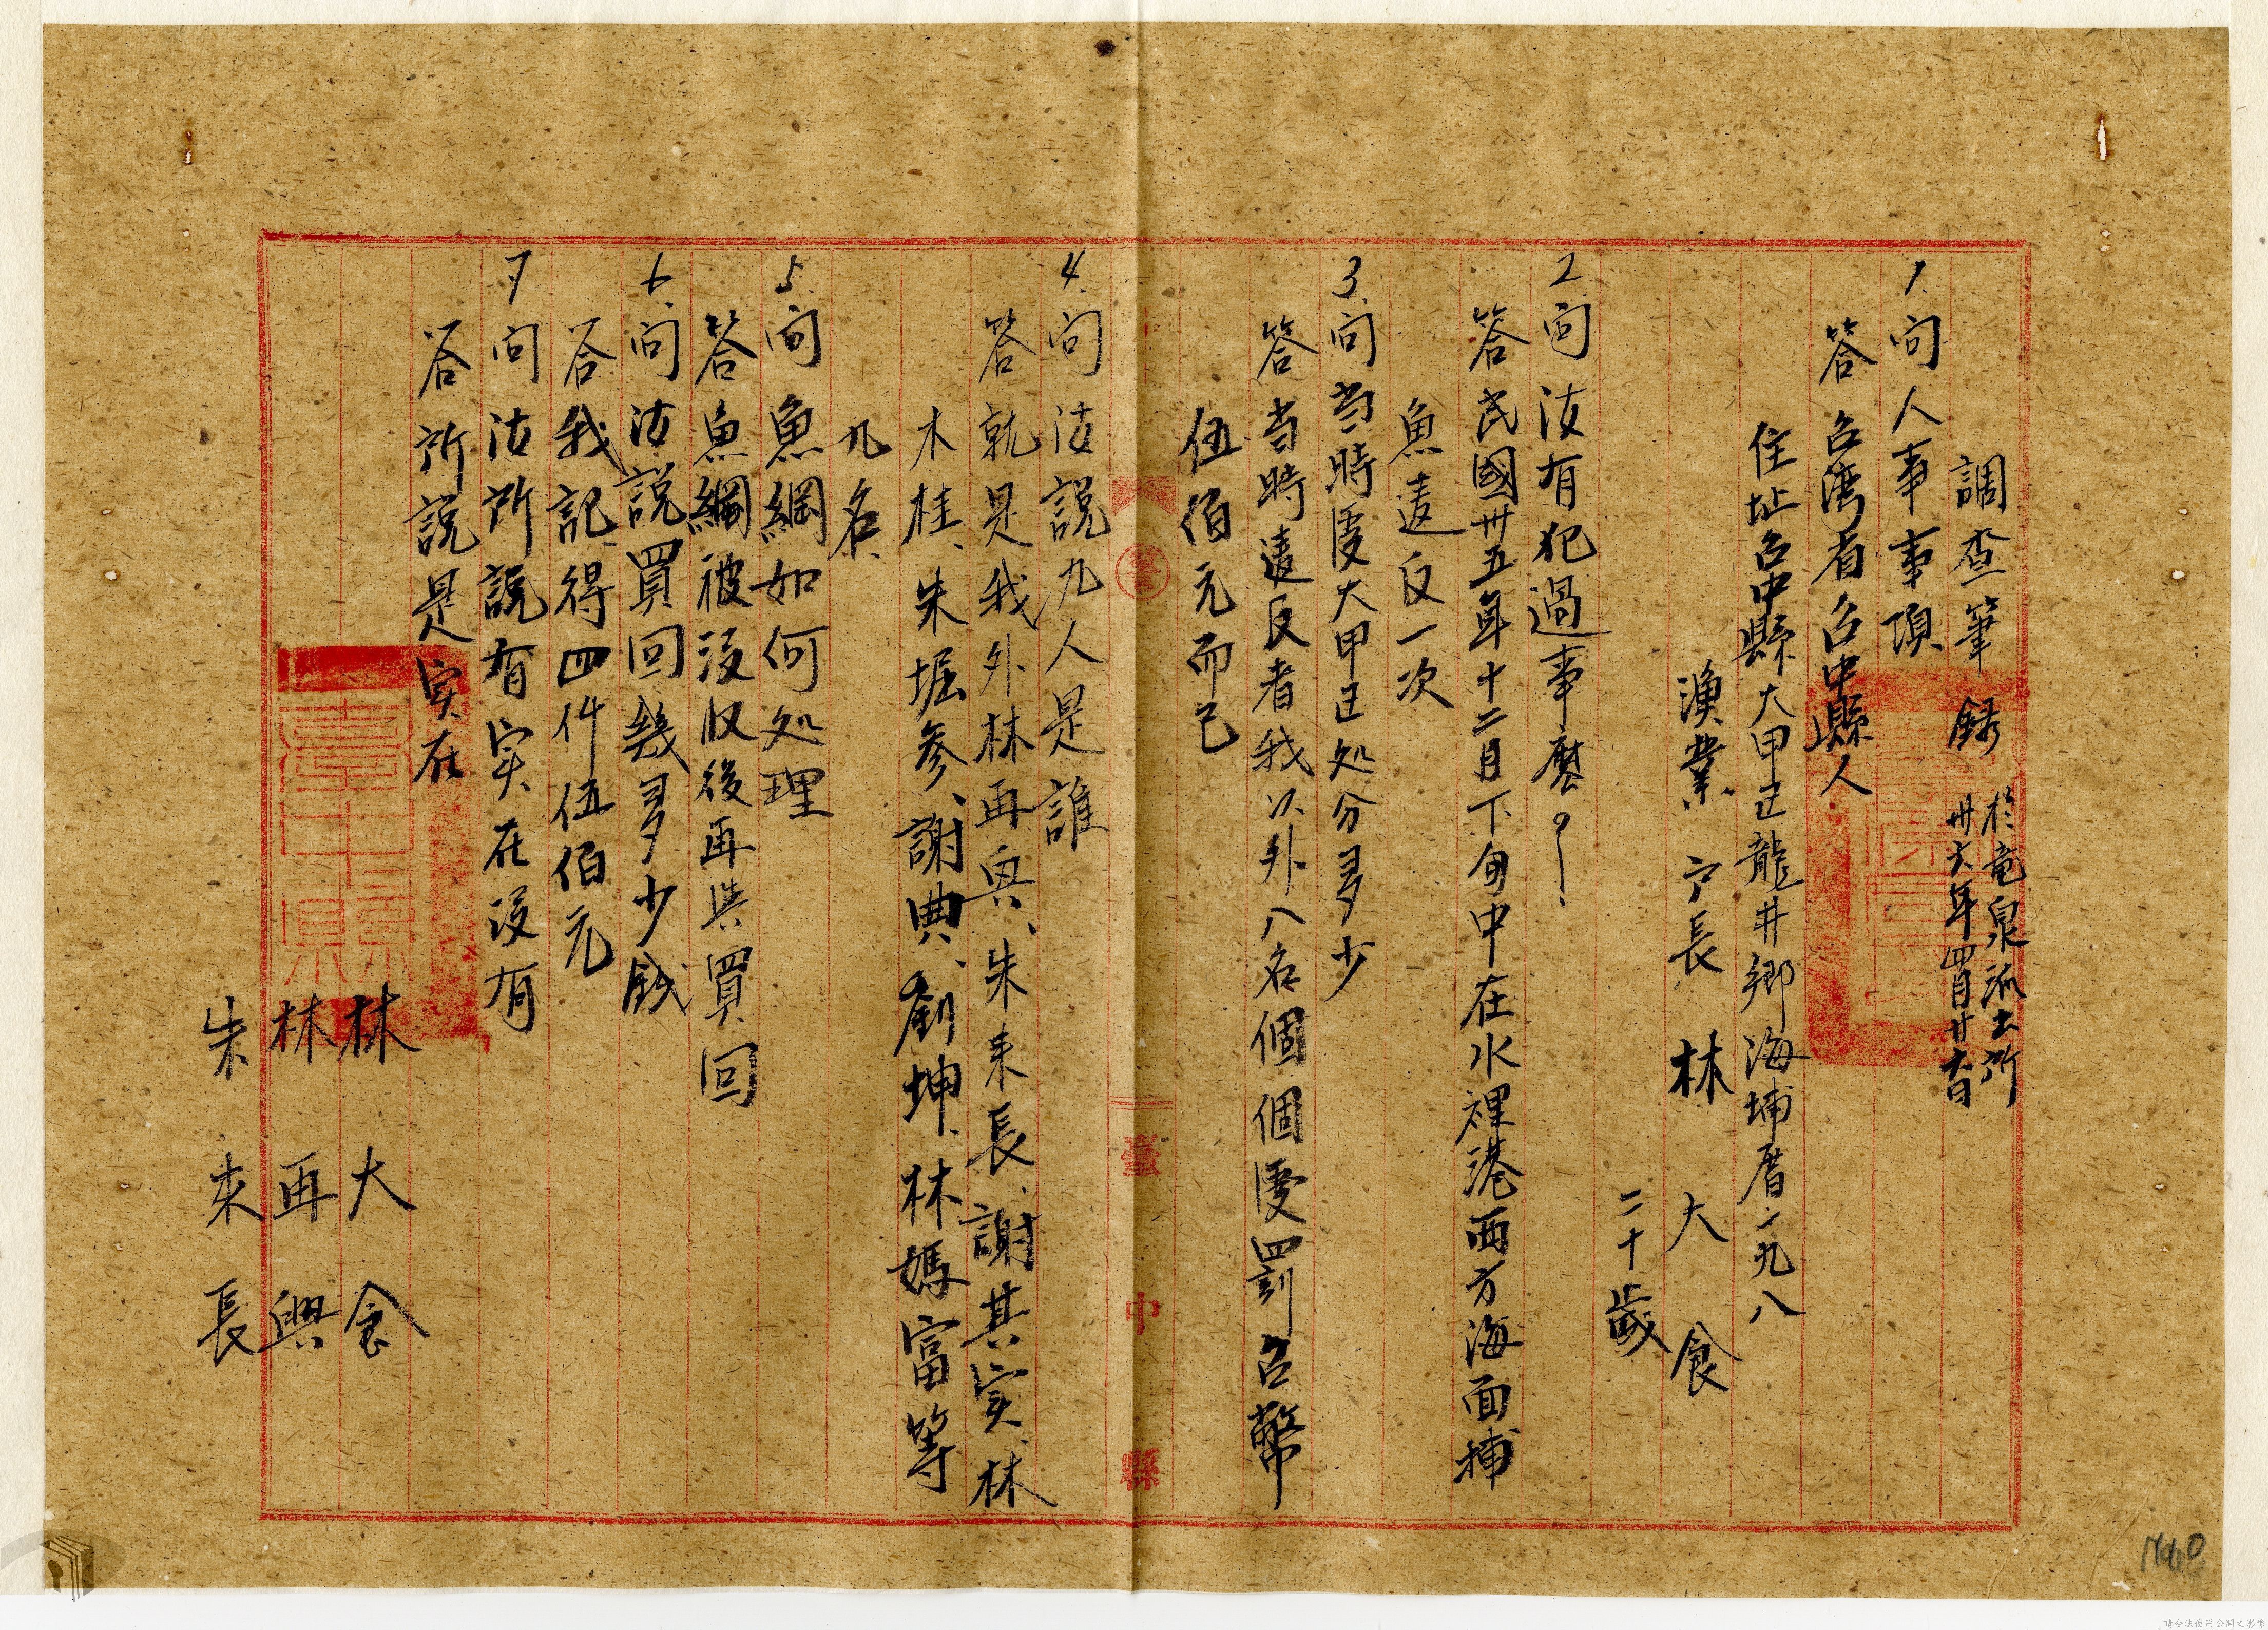 調查筆錄
於竜泉派出所
卅六年四月廿六日
1.問人事事項
答台湾省台中縣人
住址台中縣大甲区龍井鄉海埔厝一九八
漁業 户長 林大食
二十歲
2.問汝有犯過事麼?
答民國卅五年十二月下旬中在水裡港西方海面捕
魚違反一次
3.問当時受大甲区処分多少
答当時違反者我以外八名個個受罰台幣
伍佰元而已
4.問汝說九人是誰
答就是我外林再興、朱来長、謝其实、林
木桂、朱堀参、謝典、劉坤、林媽富等
九名
5.問魚網如何処理
答魚網被沒收後再共買回
6.問汝說買回幾多少錢
答我記得四件伍佰元
7問汝所說有实在沒有
答所說是实在
林大食
林再興
朱来長
臺中縣
1760
請合法使用公開之影像